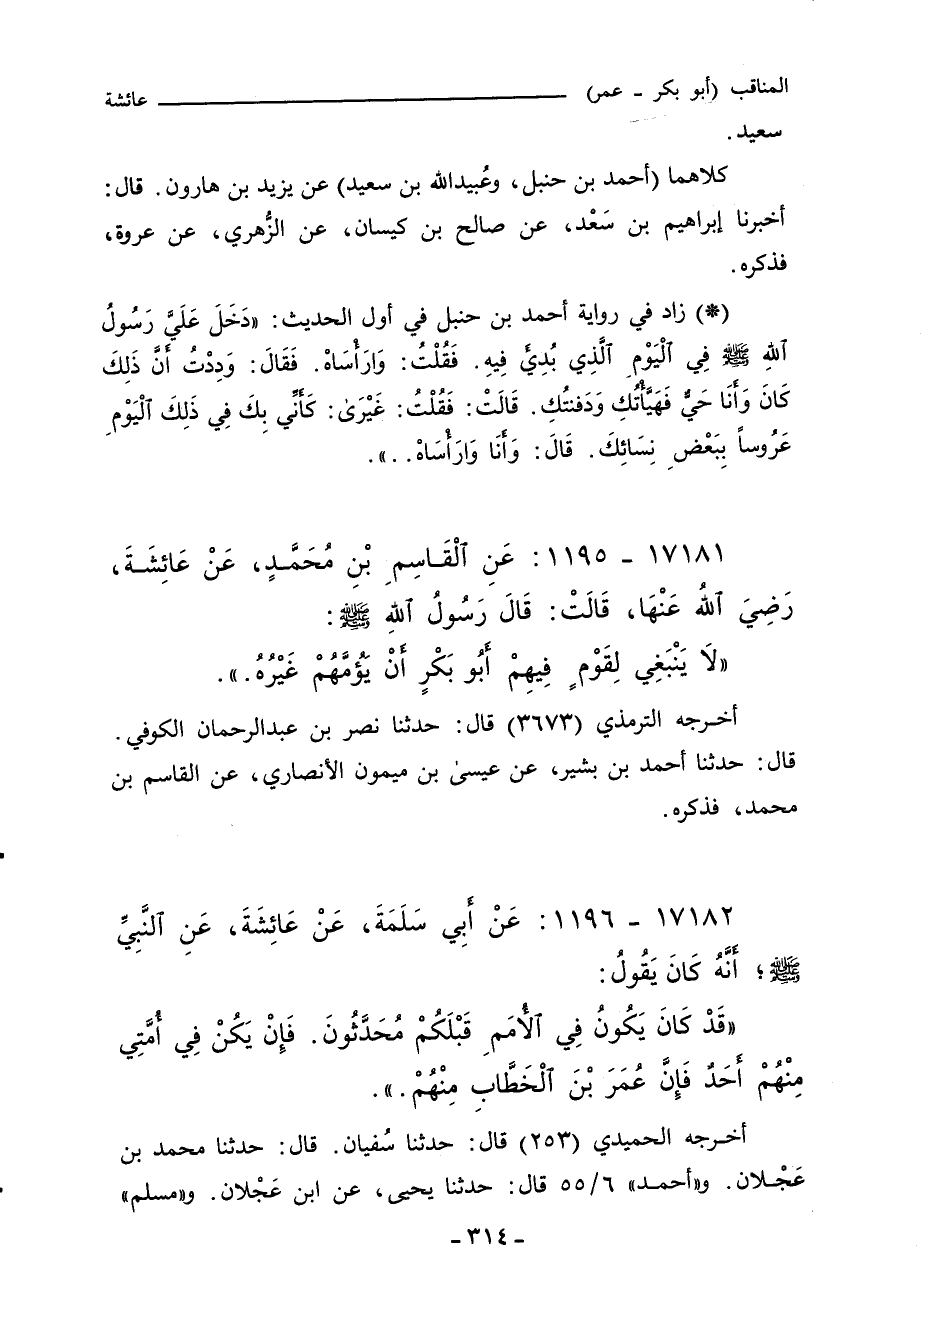 المناقب (أبو بكر - عمر) ـــــــــــــــــــــــــــــــــــــــــــــــــ عائشة
سعيد .
كلاهما (أحمد بن حنبل، وعُبيدالله بن سعيد) عن يزيد بن هارون. قال:
أخبرنا إبراهيم بن سَعْد، عن صالح بن كيسان، عن الزُّهري، عن عروة،
فذكره.
(*) زاد في رواية أحمد بن حنبل في أول الحديث: «دَخَلَ عَلَيَّ رَسُولُ
ٱللهِ ﷺ فِي ٱلْيَوْمِ ٱلَّذِي بُدِئَ فِيهِ. فَقُلْتُ: وَارَأْسَاهْ. فَقَالَ: وَدِدْتُ أَنَّ ذَلِكَ
كَانَ وَأَنَا حَيٌّ فَهَيَّأْتُكِ وَدَفَنتُكِ. قَالَتْ: فَقُلْتُ: غَيْرَىٰ: كَأَنِّي بِكَ فِي ذَلِكَ ٱلْيَوْمِ
عَرُوساً بِبَعْضِ نِسَائِكَ. قَالَ: وَأَنَا وَارَأْسَاهْ..».
١٧١٨١ - ١١٩٥: عَنِ ٱلْقَاسِمِ بْنِ مُحَمَّدٍ، عَنْ عَائِشَةَ،
رَضِيَ ٱللهُ عَنْهَا، قَالَتْ: قَالَ رَسُولُ ٱللهِ ﷺ:
«لَا يَنْبَغِي لِقَوْمٍ فِيهِمْ أَبُو بَكْرٍ أَنْ يَؤُمَّهُمْ غَيْرُهُ.».
أخرجه الترمذي (٣٦٧٣) قال: حدثنا نصر بن عبدالرحمان الكوفي.
قال: حدثنا أحمد بن بشير، عن عيسىٰ بن ميمون الأنصاري، عن القاسم بن
محمد، فذكره.
١٧١٨٢ - ١١٩٦: عَنْ أَبِي سَلَمَةَ، عَنْ عَائِشَةَ، عَنِ ٱلنَّبِيِّ
ﷺ؛ أَنَّهُ كَانَ يَقُولُ:
«قَدْ كَانَ يَكُونُ فِي ٱلْأُمَمِ قَبْلَكُمْ مُحَدَّثُونَ. فَإِنْ يَكُنْ فِي أُمَّتِي
مِنْهُمْ أَحَدٌ فَإِنَّ عُمَرَ بْنَ ٱلْخَطَّابِ مِنْهُمْ.».
أخرجه الحميدي (٢٥٣) قال: حدثنا سُفيان. قال: حدثنا محمد بن
عَجْلان. و«أحمد» ٥٥/٦ قال: حدثنا يحيى، عن ابن عَجْلان. و«مسلم»
- ٣١٤ -